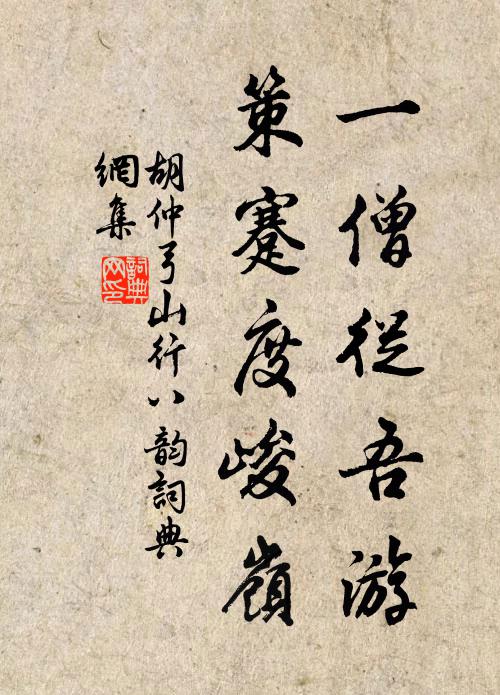 一僧從吾游
策蹇度峻嶺
胡仲弓山行八韵詞典
網集
詞典網印